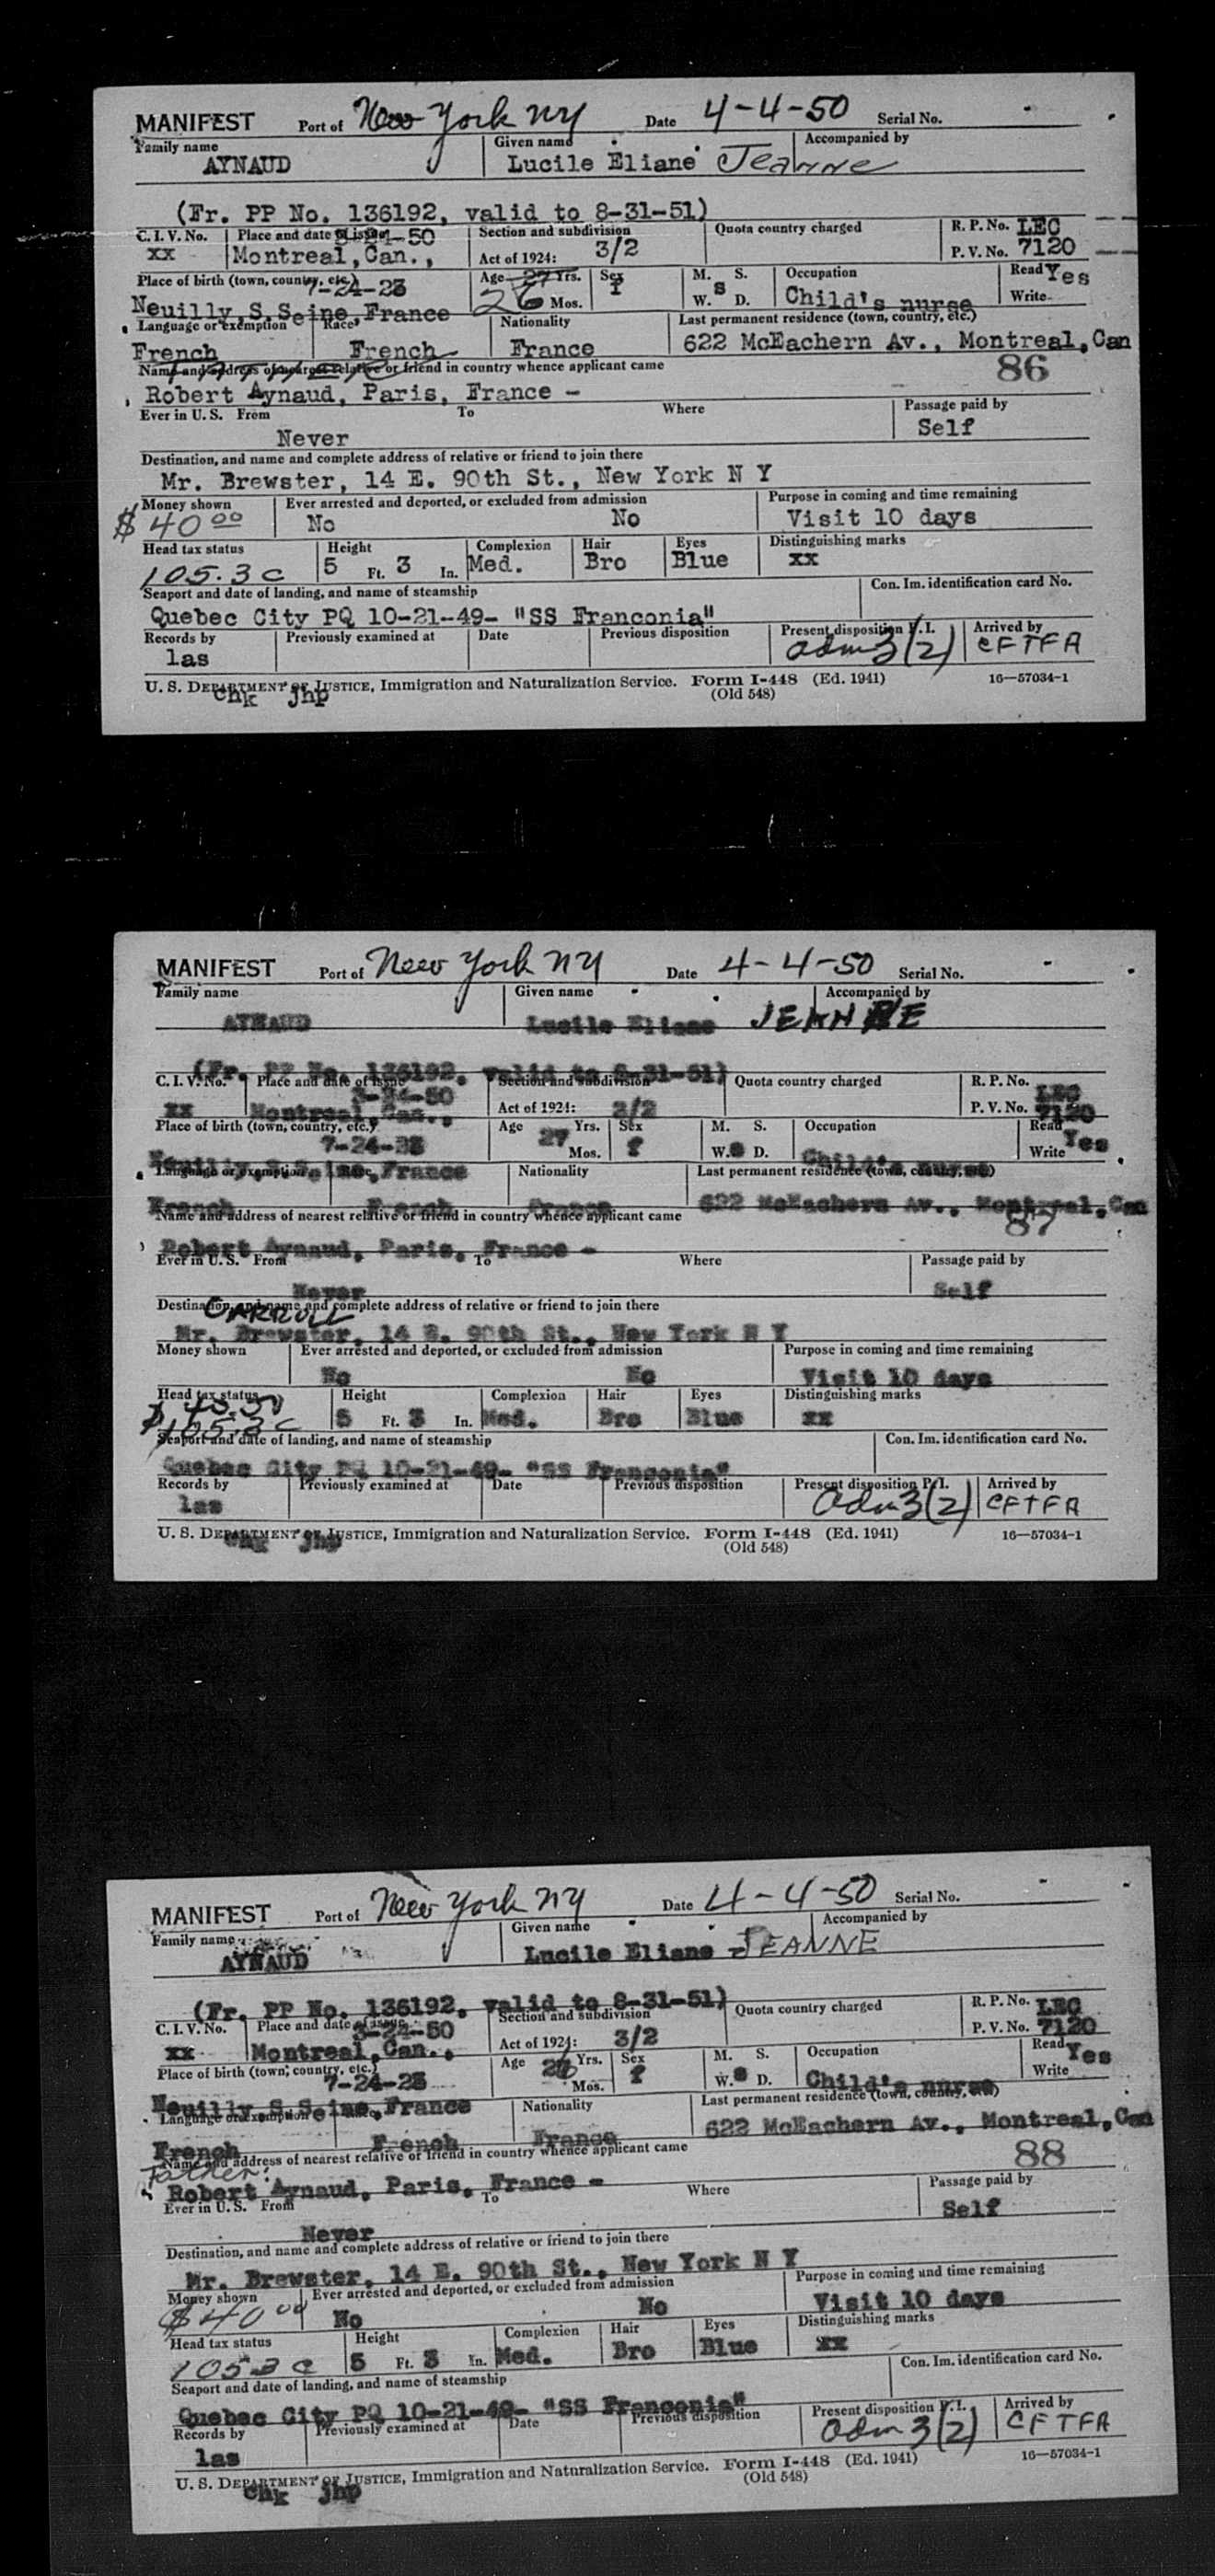 MANIFEST Port of New York NY Date 4-4-50 Serial No.
Family name Given name Accompanied by
AYNAUD Lucile Eliane Jeanne
(Fr. PP No. 136192, valid to 8-31-51)
C. I. V. No. Place and date of issue 50 Section and subdivision Quota country charged R. P. No. LEC
xx Montreal,Can., Act of 1924: 3/2 P. V. No. 7120
Place of birth (town, country, etc.) 7-24-23 Age 27 Yrs. Sex M. S. Occupation Read Yes
Neuilly,S.Seine,France 26 Mos. f W. s D. Child's nurse Write
Language or exemption Race Nationality Last permanent residence (town, country, etc.)
French French France 622 McEachern Av., Montreal,Can
Name and address of nearest relative or friend in country whence applicant came 86
Robert Aynaud, Paris, France -
Ever in U. S. From To Where Passage paid by
Never Self
Destination, and name and complete address of relative or friend to join there
Mr. Brewster, 14 E. 90th St., New York N Y
Money shown Ever arrested and deported, or excluded from admission Purpose in coming and time remaining
$40.00 No No Visit 10 days
Head tax status Height Complexion Hair Eyes Distinguishing marks
105.3c 5 Ft. 3 In. Med. Bro Blue xx
Seaport and date of landing, and name of steamship Con. Im. identification card No.
Quebec City PQ 10-21-49- "SS Franconia"
Records by Previously examined at Date Previous disposition Present disposition P.I. Arrived by
las adm 3(2) CFTFA
U. S. DEPARTMENT OF JUSTICE, Immigration and Naturalization Service. Form I-448 (Ed. 1941) 16—57034-1
chk jhp (Old 548)
MANIFEST Port of New York NY Date 4-4-50 Serial No.
Family name Given name Accompanied by
AYNAUD Lucile Eliane JEANNE
(Fr. PP No. 136192, valid to 8-31-51)
C. I. V. No. Place and date of issue Section and subdivision Quota country charged R. P. No. LEC
3-24-50
xx Montreal,Can., Act of 1924: 3/2 P. V. No. 7120
Place of birth (town, country, etc.) Age 27 Yrs. Sex M. S. Occupation Read Yes
7-24-23 Mos. f W. s D. Child's nurse Write
Neuilly,S.Seine,France
Language or exemption Race Nationality Last permanent residence (town, country, etc.)
French French France 622 McEachern Av., Montreal,Can
Name and address of nearest relative or friend in country whence applicant came 87
Robert Aynaud, Paris, France -
Ever in U. S. From To Where Passage paid by
Never Self
Destination, and name and complete address of relative or friend to join there
CARROLL
Mr. Brewster, 14 E. 90th St., New York N Y
Money shown Ever arrested and deported, or excluded from admission Purpose in coming and time remaining
No No Visit 10 days
Head tax status Height Complexion Hair Eyes Distinguishing marks
105.3c 5 Ft. 3 In. Med. Bro Blue xx
Seaport and date of landing, and name of steamship Con. Im. identification card No.
Quebec City PQ 10-21-49- "SS Franconia"
Records by Previously examined at Date Previous disposition Present disposition P.I. Arrived by
las adm 3(2) CFTFA
U. S. DEPARTMENT OF JUSTICE, Immigration and Naturalization Service. Form I-448 (Ed. 1941) 16—57034-1
chk jhp (Old 548)
MANIFEST Port of New York NY Date 4-4-50 Serial No.
Family name Given name Accompanied by
AYNAUD Lucile Eliane JEANNE
(Fr. PP No. 136192, valid to 8-31-51)
C. I. V. No. Place and date of issue 3-24-50 Section and subdivision Quota country charged R. P. No. LEC
xx Montreal,Can., Act of 1924: 3/2 P. V. No. 7120
Place of birth (town, country, etc.) Age 26 Yrs. Sex M. S. Occupation Read Yes
7-24-23 Mos. f W. s D. Child's nurse Write
Neuilly,S.Seine,France
Language or exemption Nationality Last permanent residence (town, country, etc.)
French French France 622 McEachern Av., Montreal,Can
Name and address of nearest relative or friend in country whence applicant came 88
Father:
Robert Aynaud, Paris, France -
Ever in U. S. From To Where Passage paid by
Never Self
Destination, and name and complete address of relative or friend to join there
Mr. Brewster, 14 E. 90th St., New York N Y
Money shown Ever arrested and deported, or excluded from admission Purpose in coming and time remaining
$40.00 No No Visit 10 days
Head tax status Height Complexion Hair Eyes Distinguishing marks
105.3c 5 Ft. 3 In. Med. Bro Blue xx
Seaport and date of landing, and name of steamship Con. Im. identification card No.
Quebec City PQ 10-21-49- "SS Franconia"
Records by Previously examined at Date Previous disposition Present disposition P.I. Arrived by
las adm 3(2) CFTFA
U. S. DEPARTMENT OF JUSTICE, Immigration and Naturalization Service. Form I-448 (Ed. 1941) 16—57034-1
chk jhp (Old 548)